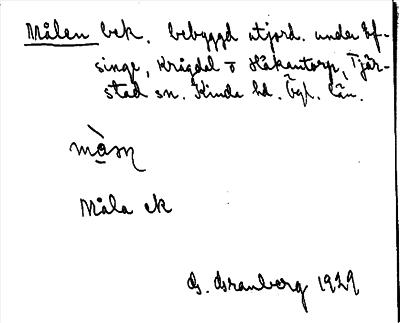 Målen bek. bebyggd utjord. under Ef-
singe, Krågdal o Håkantorp, Tjär-
stad sn. Kinda hd. Ögl. län.
màm
Måla ek
G. Granberg 1929